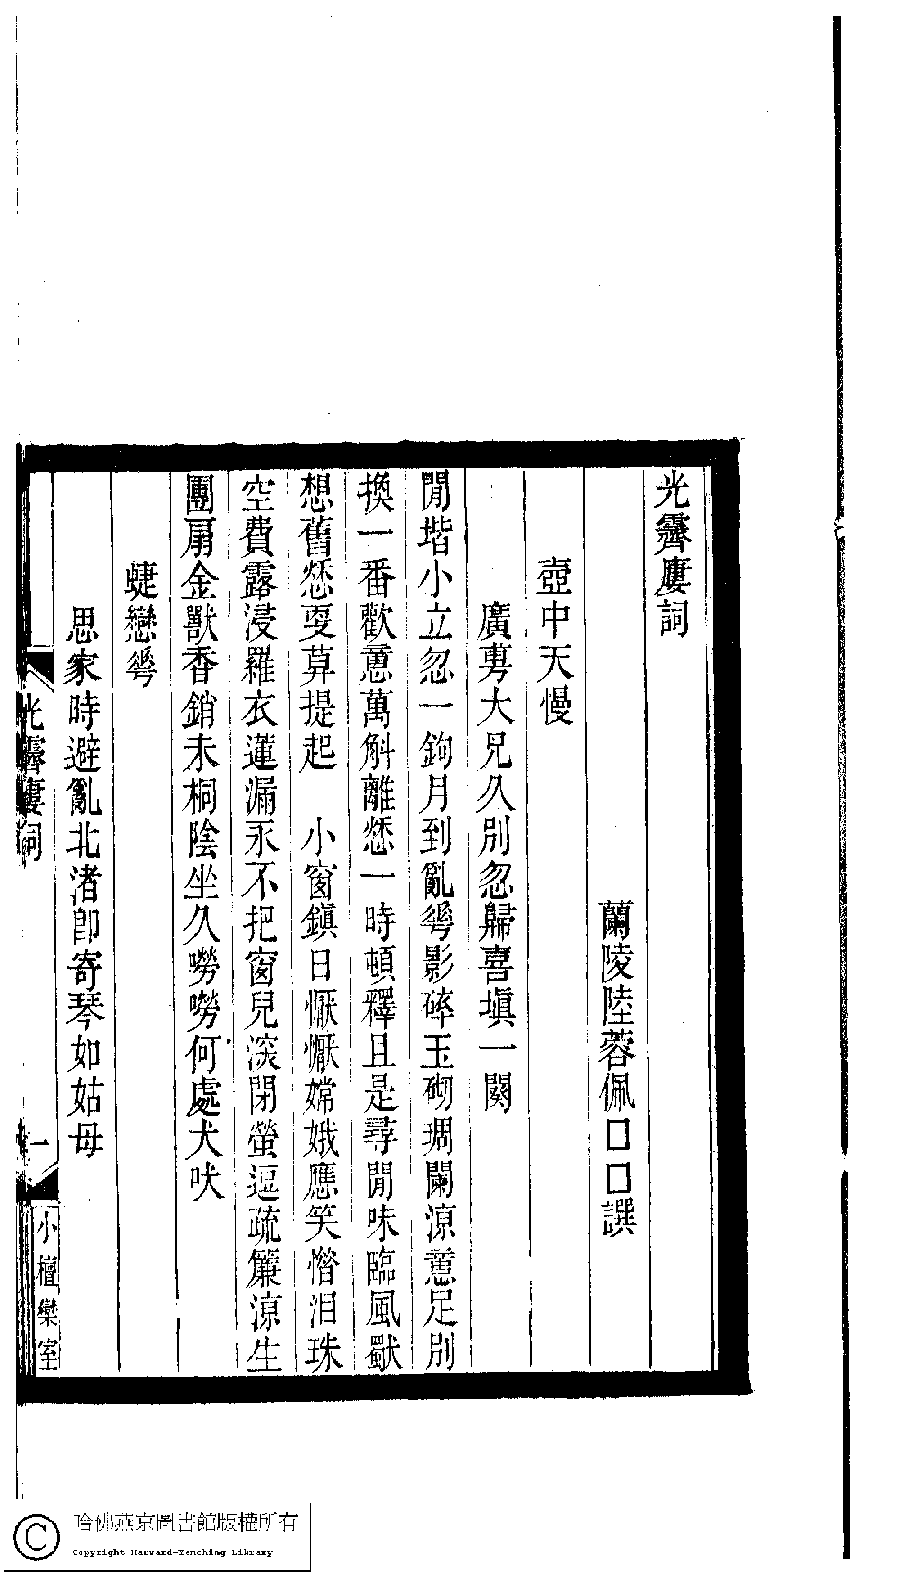 光霽廔詞
蘭陵陸蓉佩囗囗譔
壺中天慢
廣旉大兄久別忽歸喜塡一闋
閒堦小立忽一鉤月到亂蕐影碎玉砌琱闌涼意足別
換一番歡意萬斛離愁一時頓釋且是尋閒味臨風歠
想舊愁耍莫提起　小窗鎮日懨懨嫦娥應笑惜泪珠
空費露浸羅衣蓮漏永不把窗兒深閉螢逗疏簾涼生
團扇金獸香銷未桐陰坐久嘮嘮何處犬吠
蜨戀蕐
思家時避亂北渚卽寄琴如姑母
光霽廔詞
一
小檀欒室
哈佛燕京圖書館版權所有
Copyright Harvard-Yenching Library